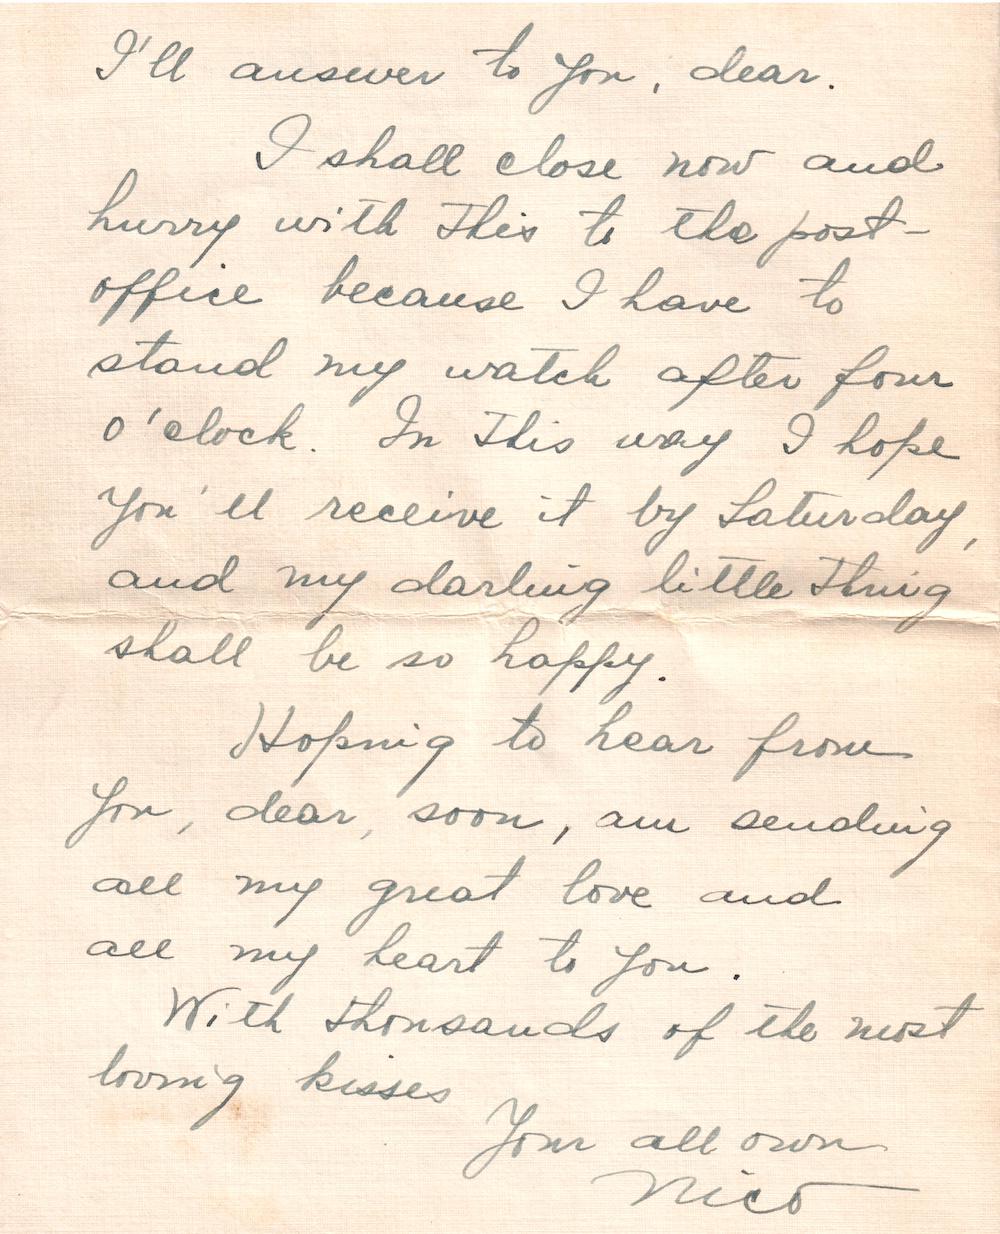 I'll answer to you, dear.
I shall close now and
hurry with this to the post-
office because I have to
stand my watch after four
o'clock. In this way I hope
you'll receive it by Saturday,
and my darling little thing
shall be so happy.
Hoping to hear from
you, dear, soon, am sending
all my great love and
all my heart to you.
With thousands of the most
loving kisses
Your all own
Nico